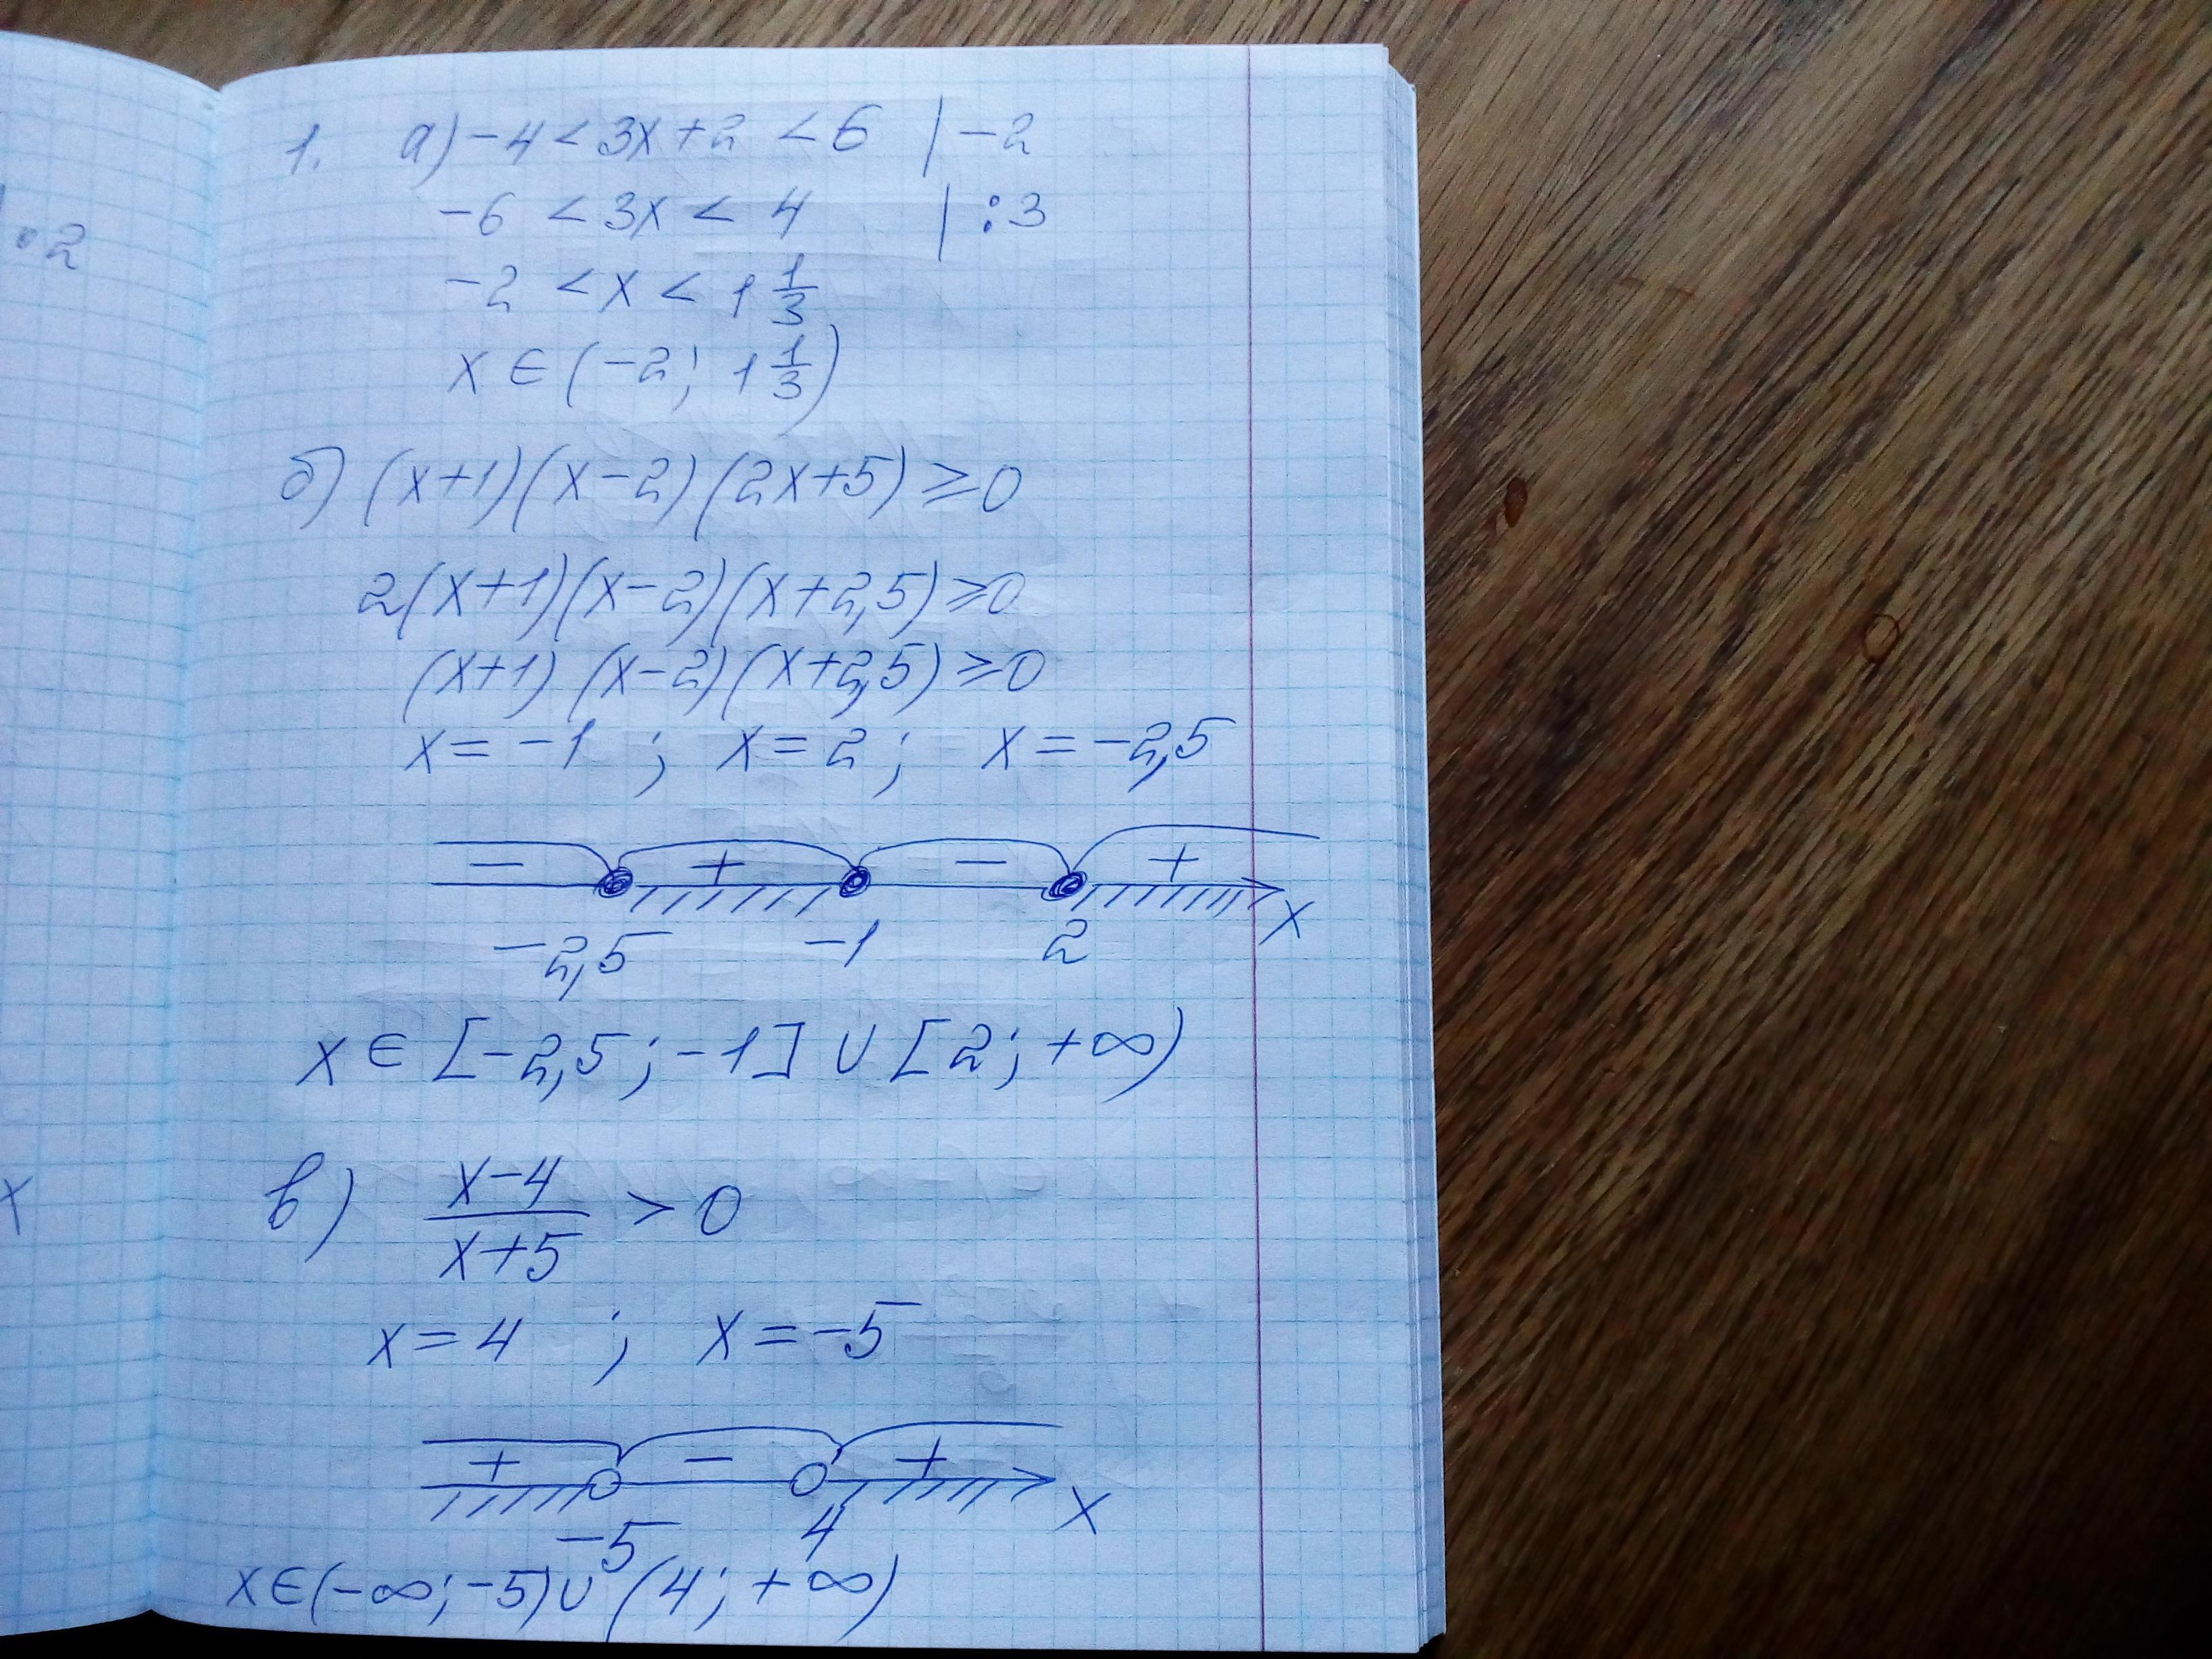 ·2
x
1. а) -4 < 3x+2 < 6 | -2
-6 < 3x < 4 | :3
-2 < x < 1 1/3
x ∈ (-2; 1 1/3)
б) (x+1)(x-2)(2x+5) ≥ 0
2(x+1)(x-2)(x+2,5) ≥ 0
(x+1)(x-2)(x+2,5) ≥ 0
x = -1 ; x = 2 ; x = -2,5
- + - +
-2,5 -1 2 x
x ∈ [-2,5; -1] ∪ [2; +∞)
в) (x-4)/(x+5) > 0
x = 4 ; x = -5
+ - +
-5 4 x
x ∈ (-∞; -5) ∪ (4; +∞)